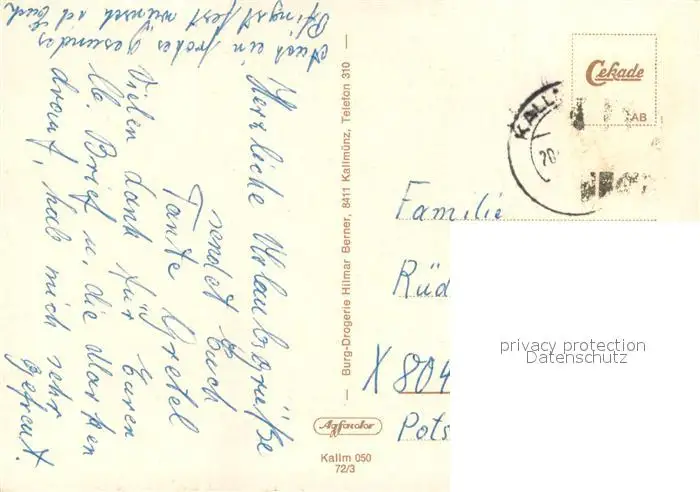 Herzliche Urlaubsgrüße
sendet Euch
Tante Gretel
Vielen dank für Euren
lb. Brief u. die Marken
drauf, hab mich sehr
gefreut.
Auch ein frohes gesundes
Pfingstfest wünsch ich Euch
Burg-Drogerie Hilmar Berner, 8411 Kallmünz, Telefon 310
Agfacolor
Kallm 050
72/3
Cekade
AB
KALL
20
Familie
Rüd
X 804
Pots
privacy protection
Datenschutz